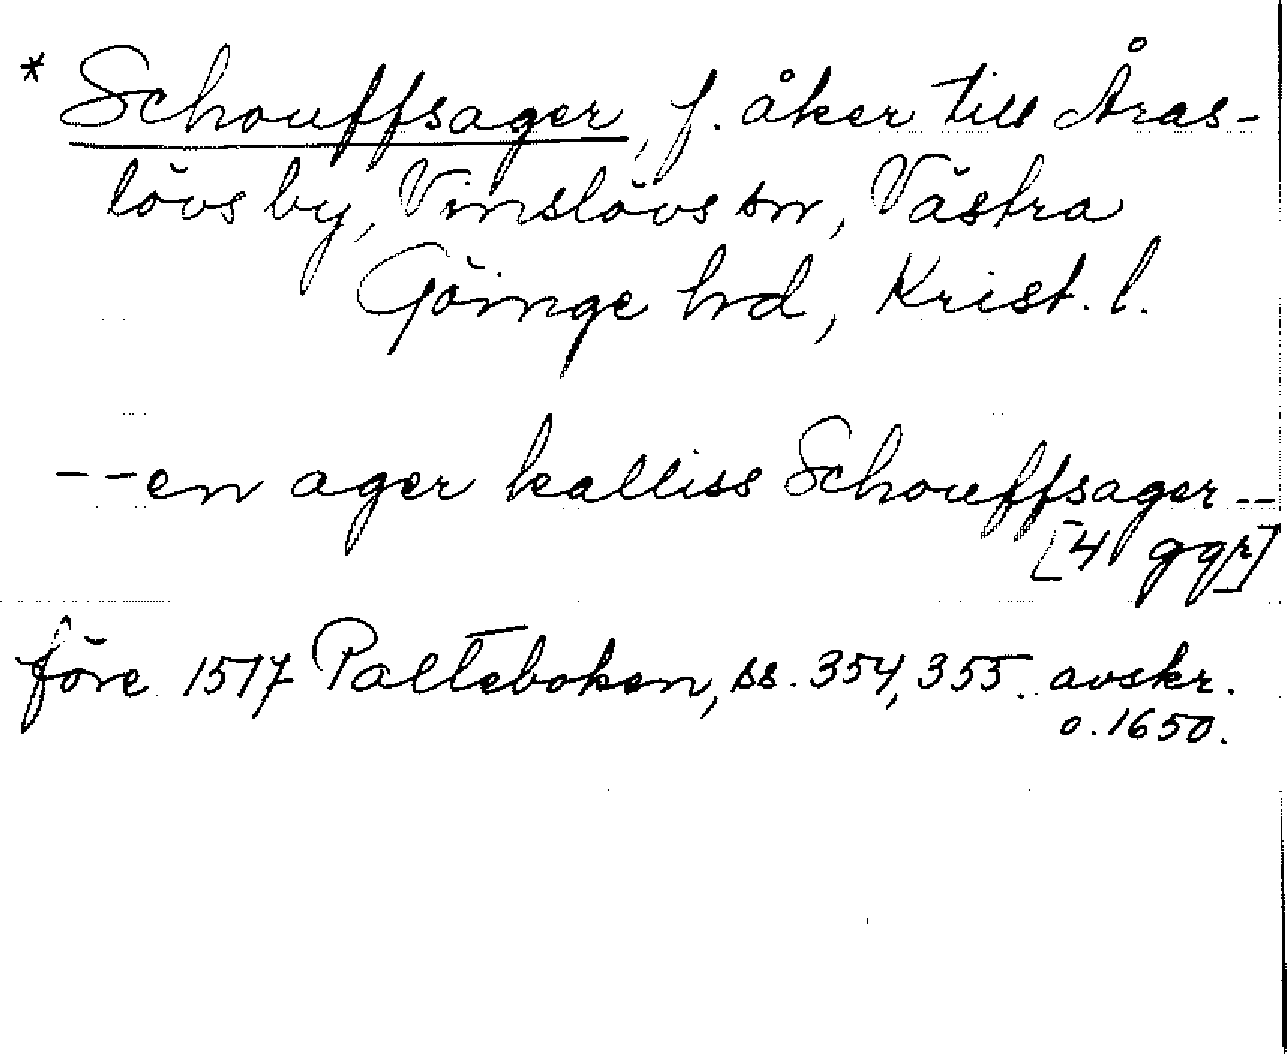 * Schouffsager, f. åker till Åras-
lövs by, Vinslövs sn, Västra
Göinge hrd, Krist. l.
- - en ager kalliss Schouffsager --
[4 ggr]
före 1517 Palteboken, ss. 354, 355. avskr.
o. 1650.